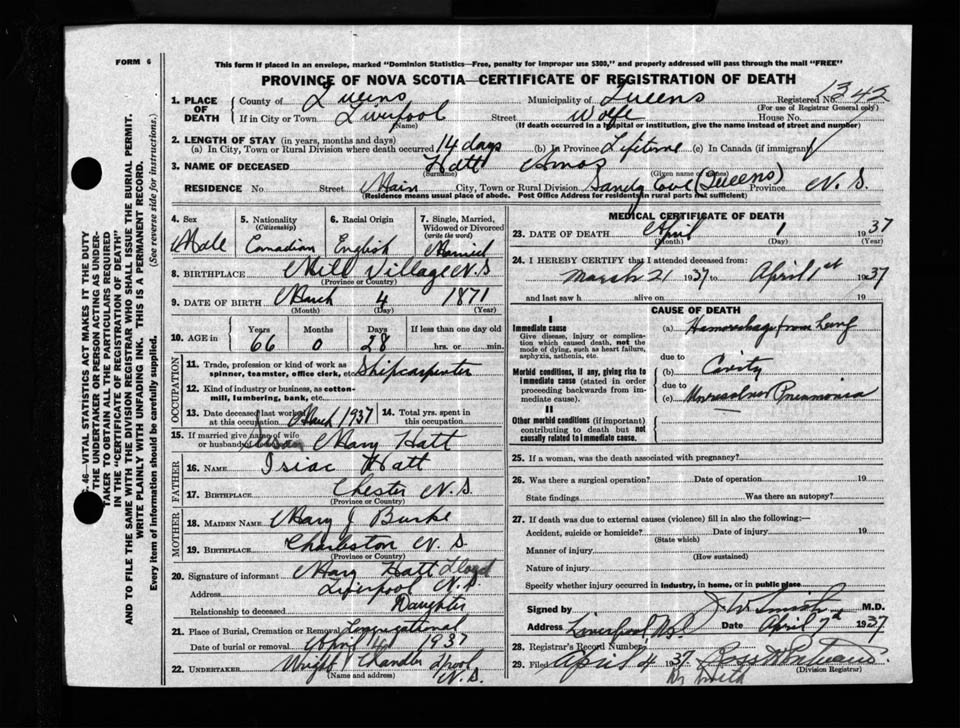 FORM 6
This form if placed in an envelope, marked "Dominion Statistics—Free, penalty for improper use $300," and properly addressed will pass through the mail "FREE"
PROVINCE OF NOVA SCOTIA—CERTIFICATE OF REGISTRATION OF DEATH
1. PLACE OF DEATH County of Queens Municipality of Queens Registered No. 1342
(For use of Registrar General only)
If in City or Town Liverpool Street Wolfe House No.
(Name) (If death occurred in a hospital or institution, give the name instead of street and number)
2. LENGTH OF STAY (in years, months and days)
(a) In City, Town or Rural Division where death occurred 14 days (b) In Province Lifetime (c) In Canada (if immigrant)
3. NAME OF DECEASED Hatt Amos
(Surname) (Given name or names)
RESIDENCE No. Street Main City, Town or Rural Division Sandy Cove (Queens) Province N. S.
(Residence means usual place of abode. Post Office Address for residents in rural parts not sufficient)
4. Sex Male
5. Nationality (Citizenship) Canadian
6. Racial Origin English
7. Single, Married, Widowed or Divorced (write the word) Married
8. BIRTHPLACE Mill Village N. S
(Province or Country)
9. DATE OF BIRTH March 4 1871
(Month) (Day) (Year)
10. AGE in Years Months Days If less than one day old
66 0 28 hrs. or min.
OCCUPATION
11. Trade, profession or kind of work as spinner, teamster, office clerk, etc. Shipcarpenter
12. Kind of industry or business, as cotton-mill, lumbering, bank, etc.
13. Date deceased last worked at this occupation March 1937 14. Total yrs. spent in this occupation
15. If married give name of wife or husband Susan Mary Hatt
FATHER
16. NAME Isiac Hatt
17. BIRTHPLACE Chester N. S.
(Province or Country)
MOTHER
18. MAIDEN NAME Mary J Burke
19. BIRTHPLACE Charleston N. S
(Province or Country)
20. Signature of informant Mary Hatt Lloyd
Address Liverpool N. S
Relationship to deceased Daughter
21. Place of Burial, Cremation or Removal Congregational
Date of burial or removal April 4 1937
22. UNDERTAKER Wright Chandler Lpool N. S.
(Name and address)
MEDICAL CERTIFICATE OF DEATH
23. DATE OF DEATH April 1 1937
(Month) (Day) (Year)
24. I HEREBY CERTIFY that I attended deceased from:
March 21 1937 to April 1st 1937
and last saw h alive on 19
CAUSE OF DEATH
I
Immediate cause
Give disease, injury or complication which caused death, not the mode of dying, such as heart failure, asphyxia, asthenia, etc.
(a) Hamorrhage from Lung
due to
Morbid conditions, if any, giving rise to immediate cause (stated in order proceeding backwards from immediate cause).
(b) Cavity
due to
(c) Unresolved Pneumonia
II
Other morbid conditions (if important) contributing to death but not causally related to immediate cause.
25. If a woman, was the death associated with pregnancy?
26. Was there a surgical operation? Date of operation 19
State findings Was there an autopsy?
27. If death was due to external causes (violence) fill in also the following:—
Accident, suicide or homicide? Date of injury 19
(State which)
Manner of injury
(How sustained)
Nature of injury
Specify whether injury occurred in industry, in home, or in public place
Signed by J. W Smith M.D.
Address Liverpool N.S Date April 7th 1937
28. Registrar's Record Number
29. Filed April 4 1937
(Division Registrar)
46—VITAL STATISTICS ACT MAKES IT THE DUTY
THE UNDERTAKER OR PERSON ACTING AS UNDER-
TAKER TO OBTAIN ALL THE PARTICULARS REQUIRED
IN THE "CERTIFICATE OF REGISTRATION OF DEATH"
AND TO FILE THE SAME WITH THE DIVISION REGISTRAR WHO SHALL ISSUE THE BURIAL PERMIT.
WRITE PLAINLY WITH UNFADING INK. THIS IS A PERMANENT RECORD.
Every item of information should be carefully supplied. (See reverse side for instructions.)